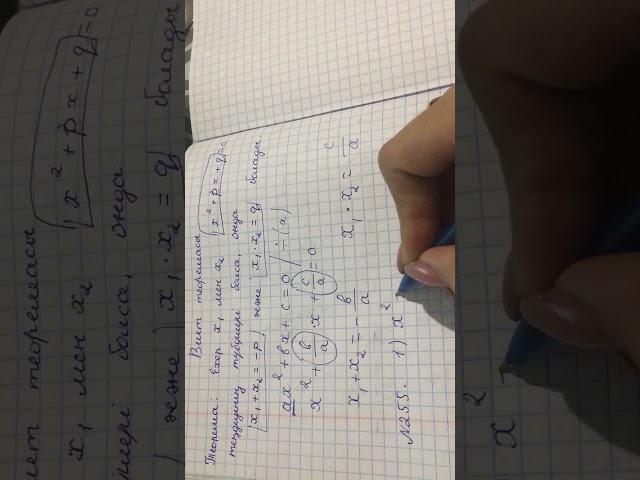 Виет теоремасы
Теорема: Егер x₁ мен x₂ x² + px + q = 0
теңдеуінің түбірлері болса, онда
x₁ + x₂ = -p және x₁ · x₂ = q болады.
ax² + bx + c = 0 / ÷ (a)
x² + b/a · x + c/a = 0
x₁ + x₂ = - b/a x₁ · x₂ = c/a
№255. 1) x² -